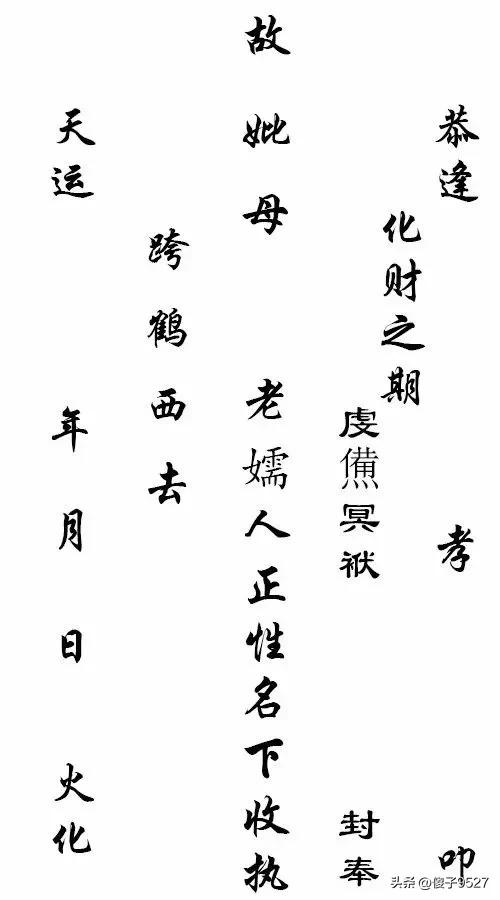 恭逢 孝 叩
化财之期
虔僃冥袱 封奉
故妣母 老孺人正性名下收执
跨鹤西去
天运 年 月 日 火化
头条 @傻子9527